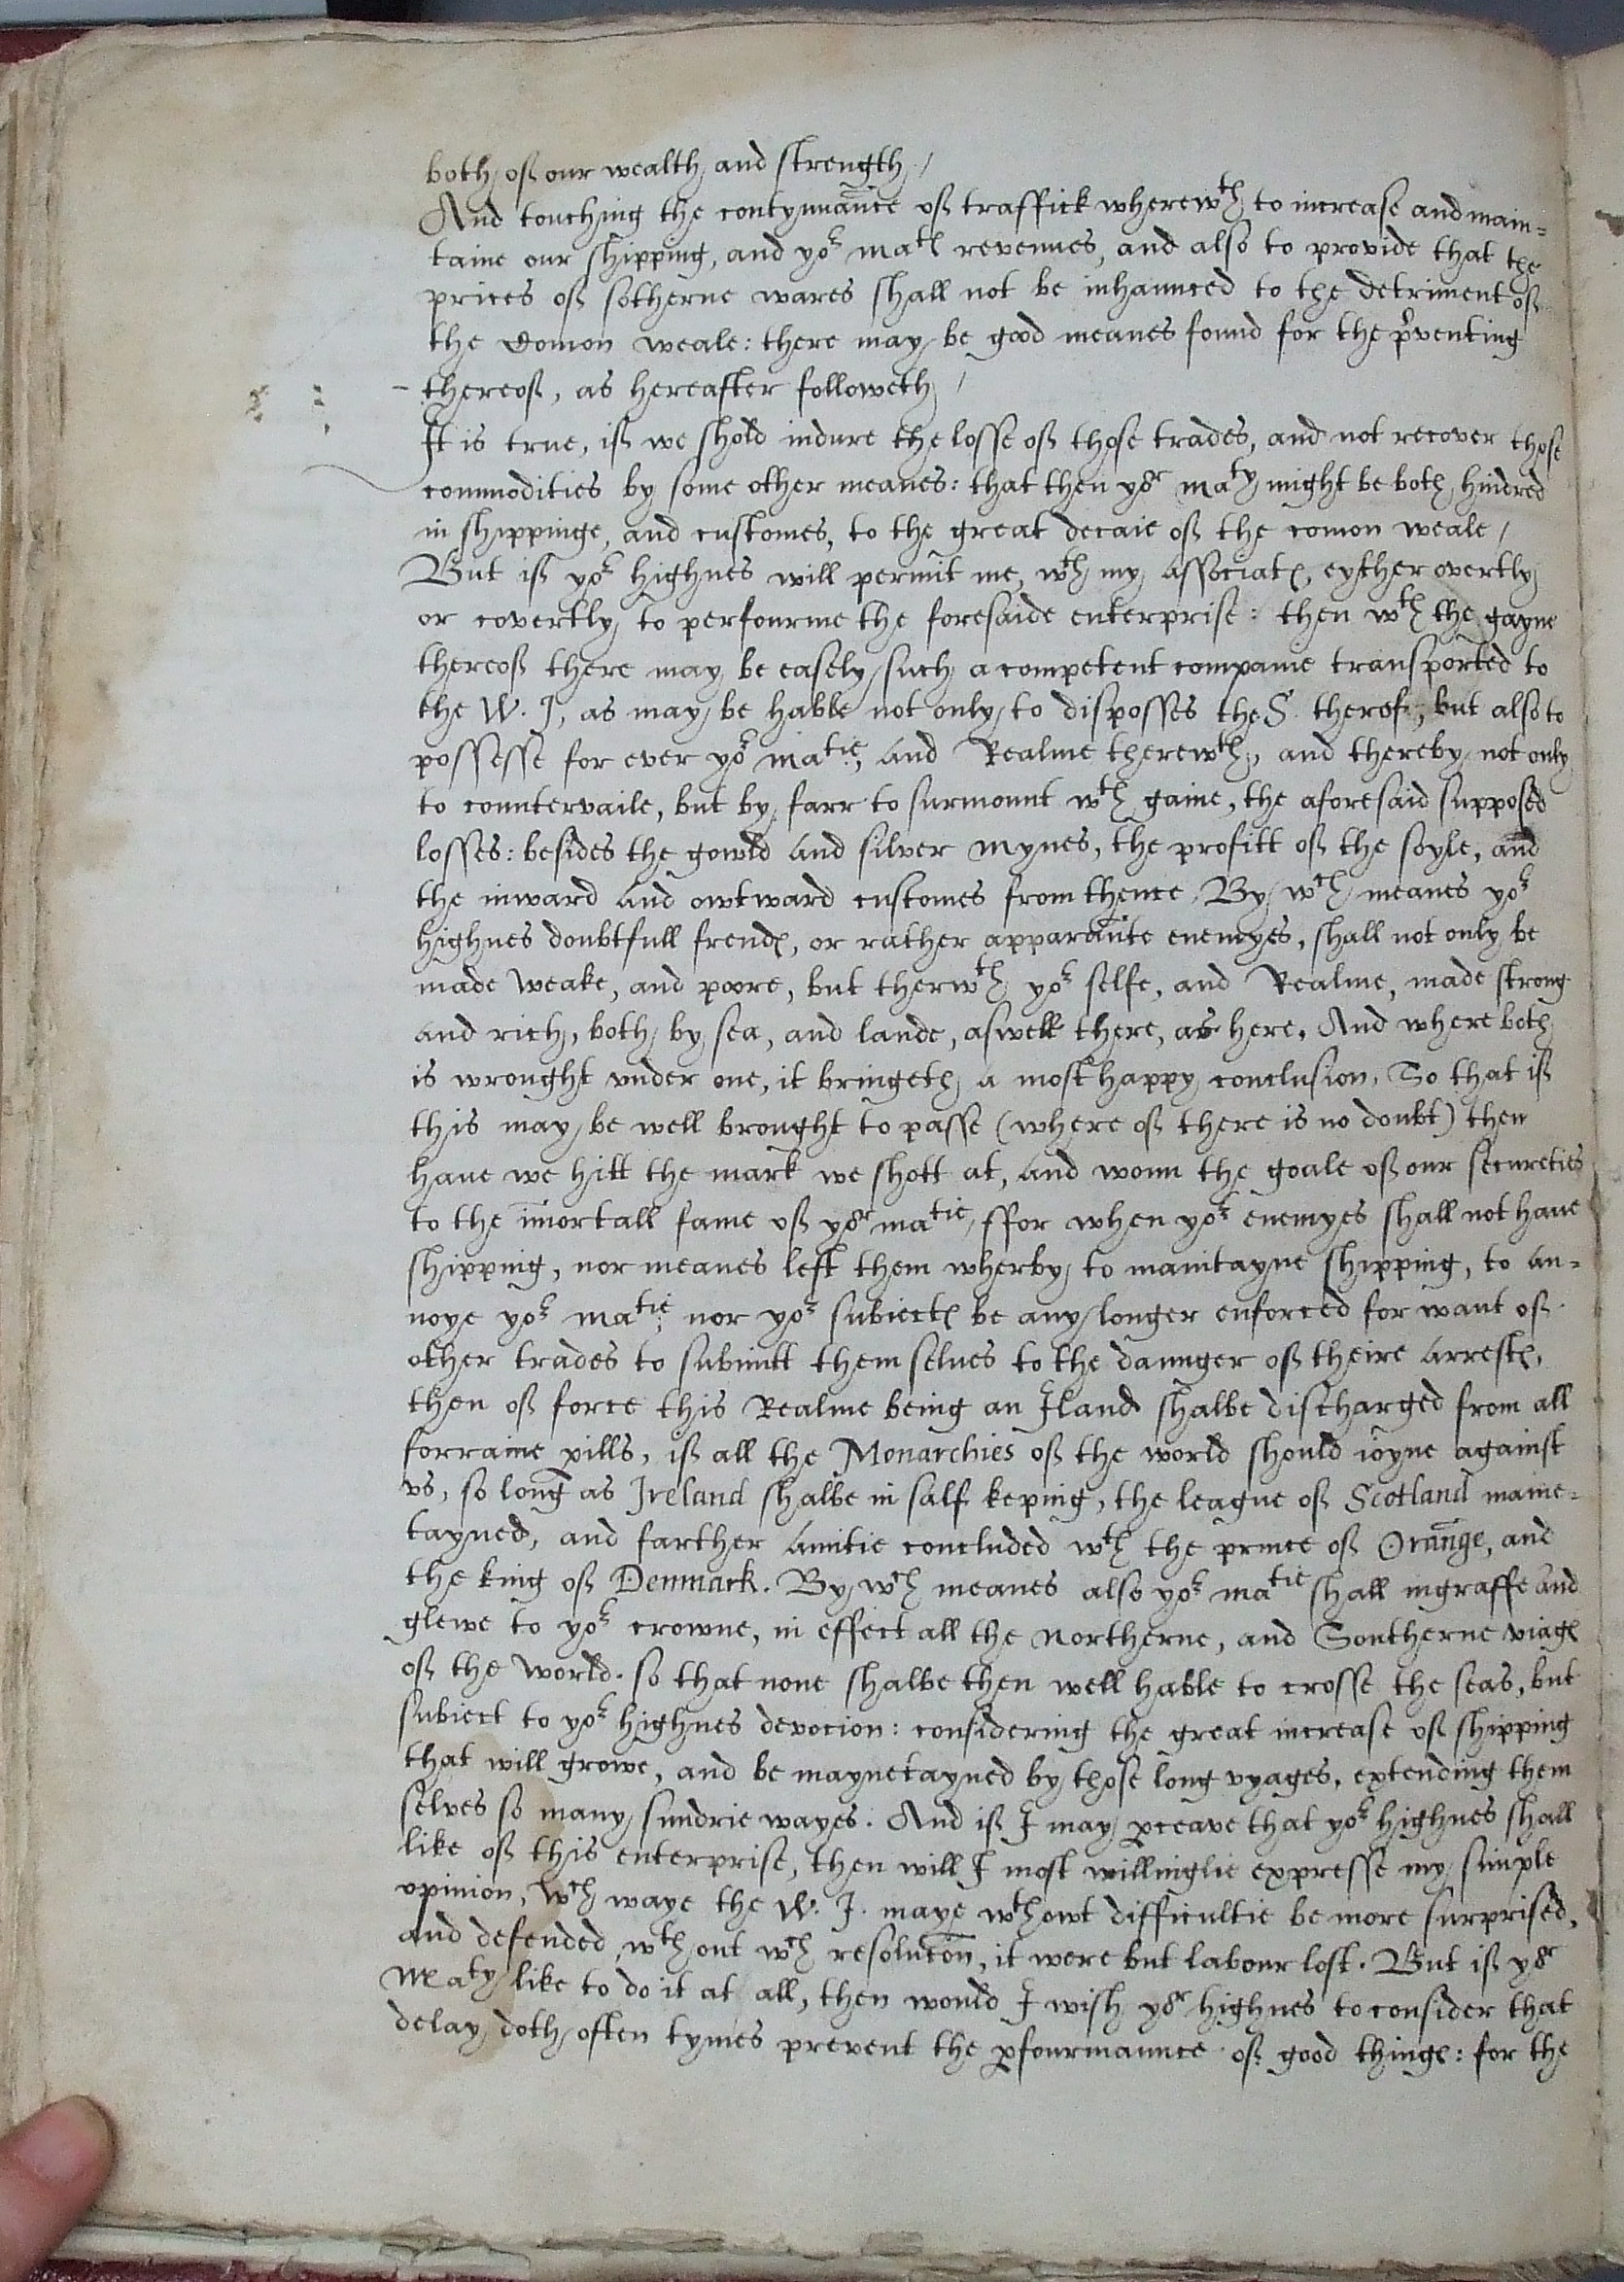 both of our wealth and strength /
And touching the contynuance of traffick wherewth to increase and main=
taine our shipping, and yor mats revenues, and also to provide that the
prices of sotherne wares shall not be inhaunced to the detriment of
the Comon weale: there may be good meanes found for the pruenting
thereof, as hereafter followeth /
It is true, if we shold indure the losse of those trades, and not recover those
commodities by some other meanes: that then yor maty might be both hindred
in shippinge, and customes, to the great decaie of the comon weale /
But if yor highnes will permit me, wth my associates, eyther overtly
or covertly to perfourme the foresaide enterprise: then wth the gayne
thereof there may be easely such a competent companie transported to
the W. I, as may be hable not only to disposses the S. therof, but also to
possesse for ever yor matie, and Realme therewth, and thereby not only
to countervaile, but by farr to surmount wth gaine, the aforesaid supposed
losses: besides the gowld and silver mynes, the profitt of the soyle, and
the inward and owtward customes from thence. By wch meanes yor
highnes doubtfull frends, or rather apparante enemyes, shall not only be
made weake, and poore, but therwth yor selfe, and Realme, made strong
and rich, both by sea, and lande, aswell there, as here. And where both
is wrought vnder one, it bringeth a most happy conclusion. So that if
this may be well brought to passe (where of there is no doubt) then
haue we hitt the mark we shott at, and wonn the goale of our secureties
to the imortall fame of yor matie, ffor when yor enemyes shall not haue
shipping, nor meanes left them wherby to maintayne shipping, to an=
noye yor matie: nor yor subiects be any longer enforced for want of
other trades to submitt them selues to the daunger of theire arrests,
then of force this Realme being an Iland shalbe discharged from all
forraine pills, if all the Monarchies of the world should ioyne against
vs, so long as Ireland shalbe in salf keping, the league of Scotland maine=
tayned, and farther amitie concluded wth the prince of Orange, and
the king of Denmark. By wch meanes also yor matie shall ingraffe and
glewe to yor crowne, in effect all the Northerne, and Southerne viages
of the World. so that none shalbe then well hable to crosse the seas, but
subiect to yor highnes devocion: considering the great increase of shipping
that will growe, and be maynetayned by those long vyages, extending them
selves so many sundrie wayes. And if I may pceave that yor highnes shall
like of this enterprise, then will I most willinglie expresse my simple
opinion, wch waye the W. I. maye wthowt difficultie be more surprised,
and defended wth out wch resolucon, it were but labour lost. But if yor
Maty like to do it at all, then would I wish yor highnes to consider that
delay doth often tymes prevent the pfourmaunce of good things: for the